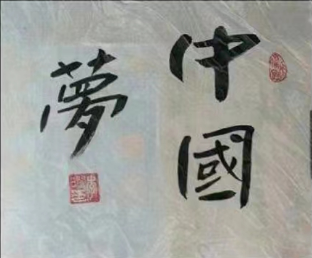 中國
夢